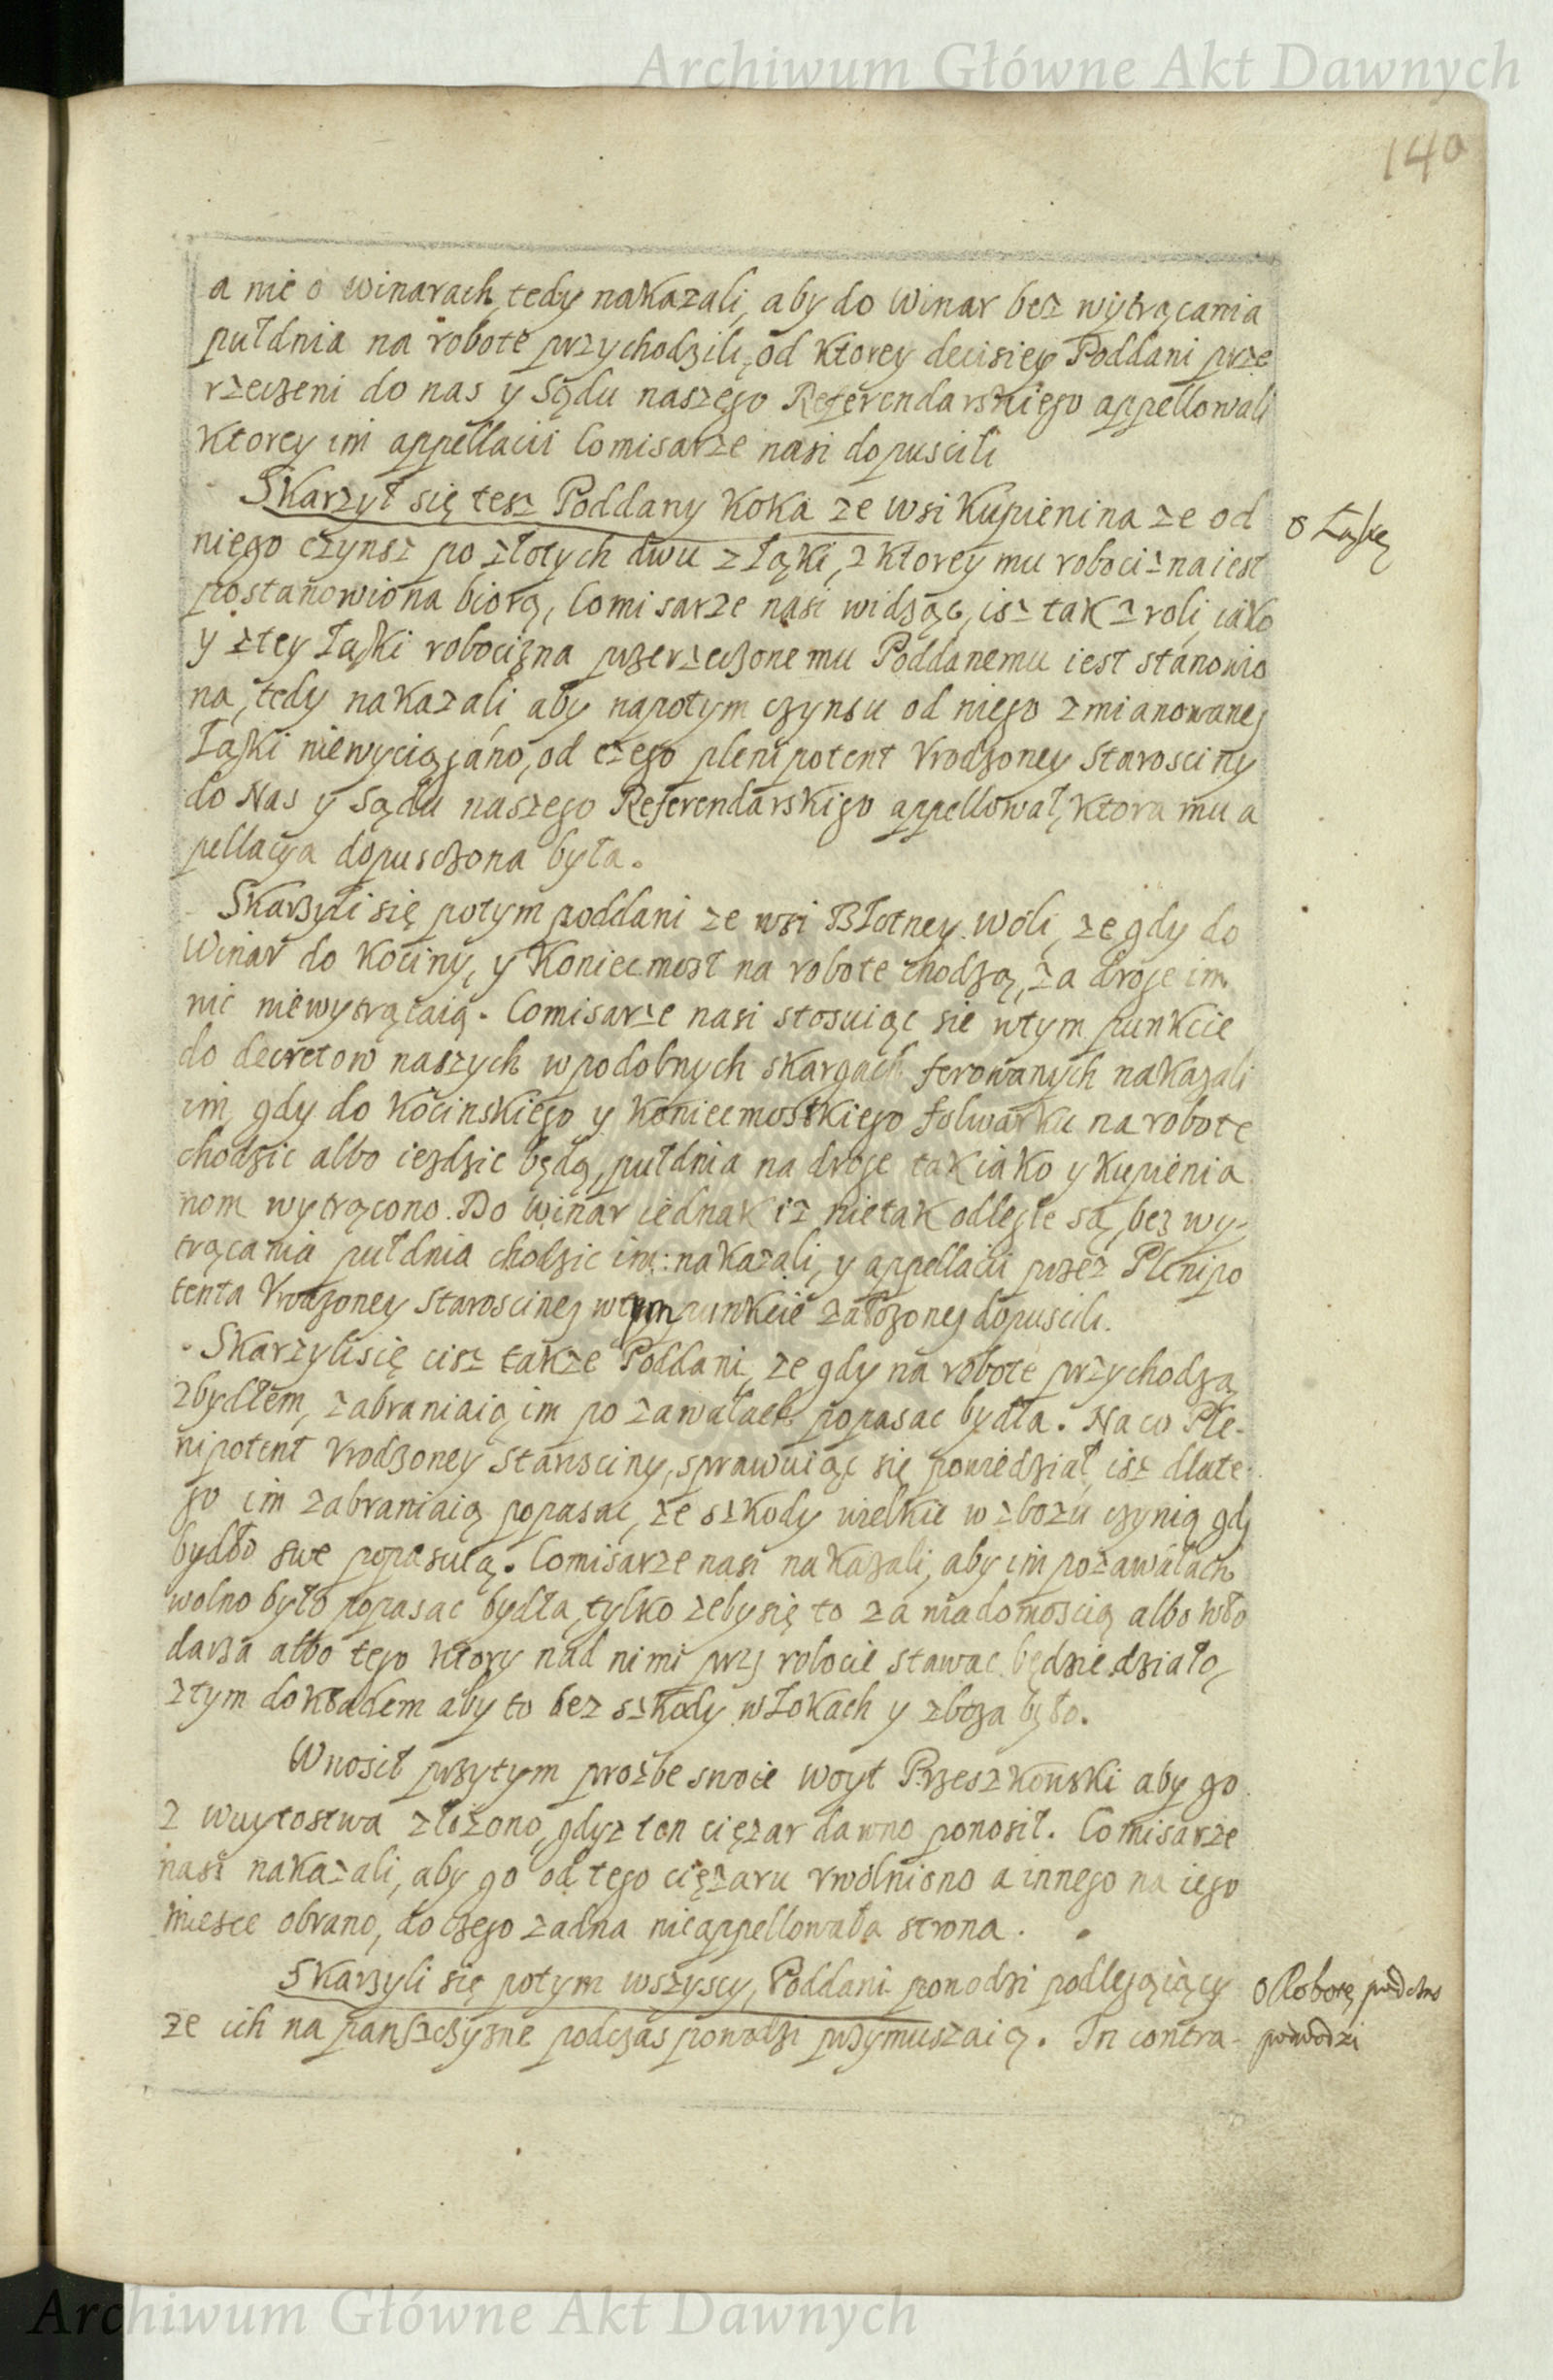 Archiwum Główne Akt Dawnych
140
a nie o winarach, tedy nakazali, aby do Winar bez wytrącania
pułdnia na robote przychodzili, od ktorey decisiey Poddani prze
rzeczeni do nas y Sądu naszego Referendarskiego appellowali
ktorey im appellacii Comisarze nasi dopuscili
Skarzył się tesz Poddany Koka ze wsi Kupienina ze od
o Łąkę
niego czynsz po złotych dwu z łąki, z ktorey mu robocizna iest
postanowiona biorą, Comisarze nasi widząc, isz tak z roli, iako
y z tey łąki robocizna przerzeczonemu Poddanemu iest stanowio
na, tedy nakazali aby napotym czynsu od niego z mianowaney
łąki niewyciągano, od czego plenipotent Vrodzoney Starosciny
do Nas y Sądu naszego Referendarskiego appellował, ktora mu a
pellacya dopusczona była.
Skarzyli się potym poddani ze wsi Błotney Woli, ze gdy do
Winar do Kociny, y Koniecmost na robote chodzą, za droge im
nic niewytrącaią. Comisarze nasi stosuiąc sie wtym punkcie
do decretow naszych w podobnych skargach ferowanych nakazali
im, gdy do Kocinskiego y Koniecmostkiego folwarku na robote
chodzic albo iezdzic będą, pułdnia na droge tak iako y Kupienia
nom wytrącono. Do Winar iednak iz nietak odległe są, bez wy-
trącania pułdnia chodzic im nakazali, y appellacii przez Plenipo
tenta Vrodzoney Starosciney wtym punkcie założoney dopuscili.
Skarzyli się cisz takze Poddani, ze gdy na robote przychodzą
z bydłem, zabraniaią im po zawałach popasac bydła. Na co Ple-
nipotent Vrodzoney Starosciny, sprawuiąc się powiedział, isz dlate-
go im zabraniaią popasac, ze szkody wielkie w zbozu czynią gdy
bydło swe popasuią. Comisarze nasi nakazali, aby im po zawałach
wolno było popasac bydła, tylko zeby się to za wiadomoscią albo wło
darza albo tego ktory nad nimi przy robocie stawac będzie działo,
z tym dokładem aby to bez szkody w łokach y zboza było.
Wnosił przytym prozbe swoie woyt Przeszkowski aby go
z wuytostwa złożono, gdyz ten ciężar dawno ponosił. Comisarze
nasi nakazali, aby go od tego ciężaru vwolniono a innego na iego
miesce obrano, do czego zadna nieappellowała strona.
Skarzyli się potym wszyscy, Poddani powodzi podlegaiący
o Robotę podczas
ze ich na panszczyzne podczas powodzi przymuszaią. In contra-
powodzi
Archiwum Główne Akt Dawnych